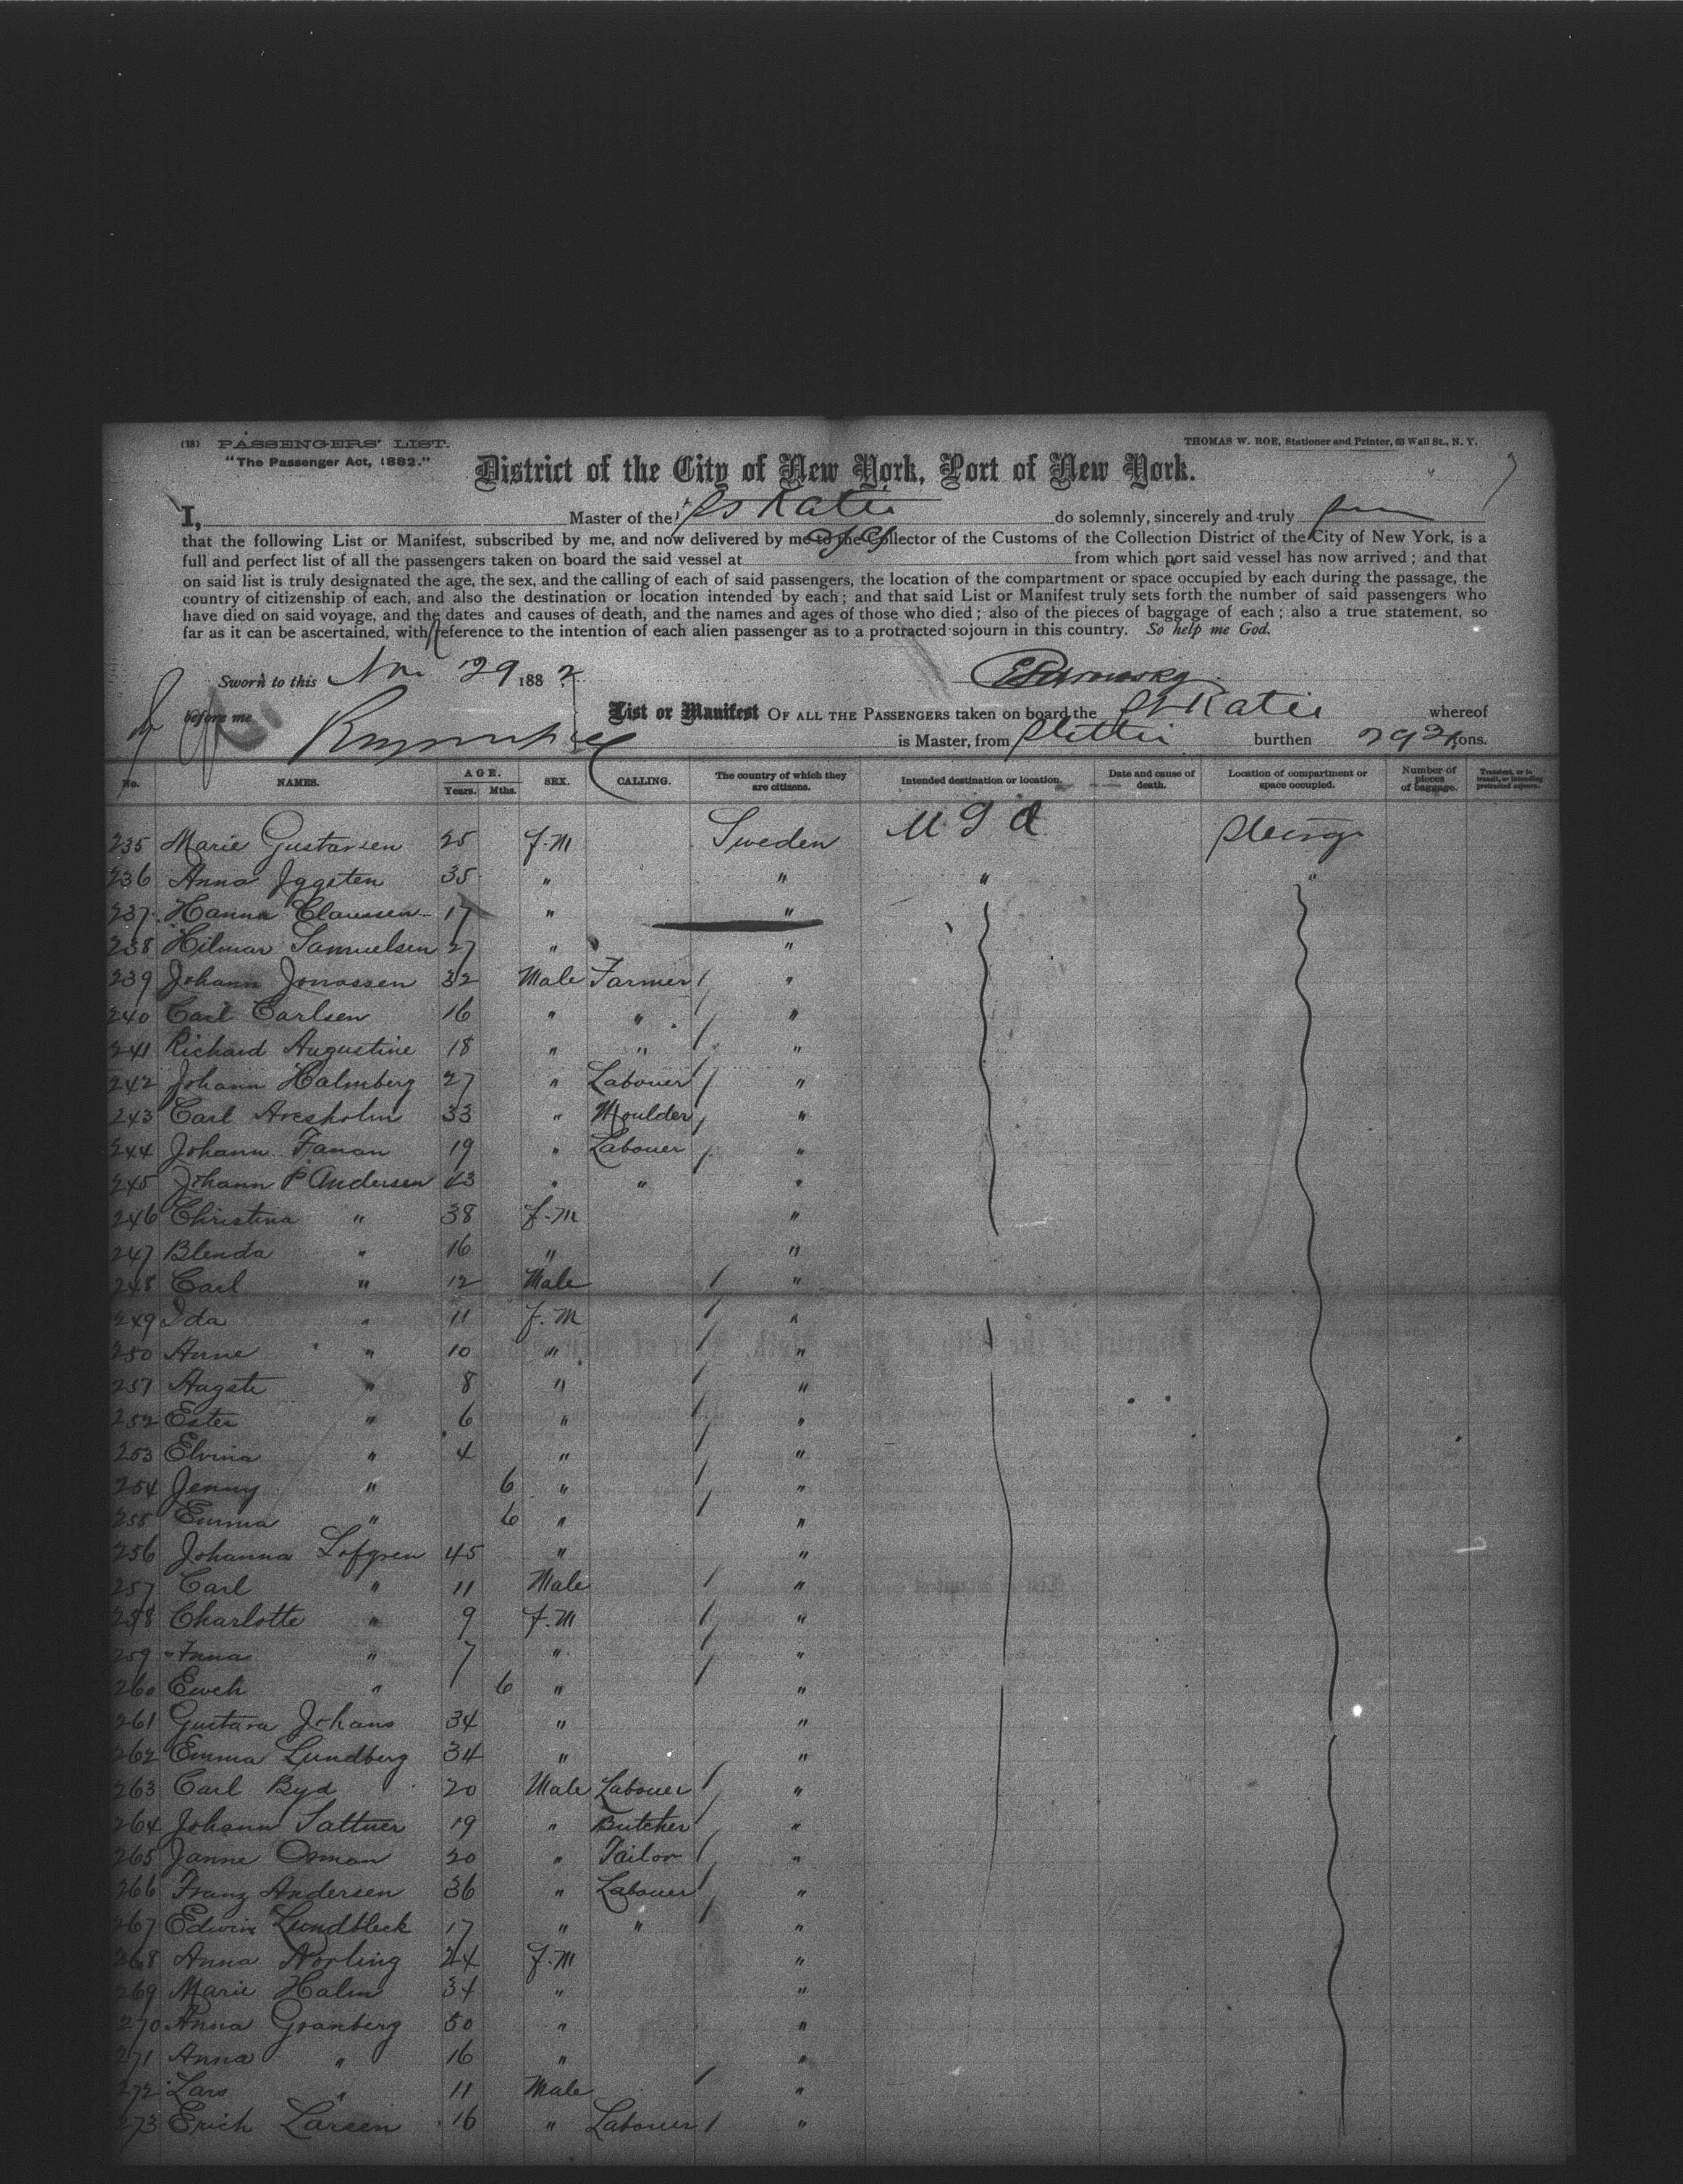 (18) PASSENGERS' LIST.
THOMAS W. ROE, Stationer and Printer, 63 Wall St., N. Y.
"The Passenger Act, 1882."
District of the City of New York, Port of New York.
I, Master of the SS Katie do solemnly, sincerely and truly
that the following List or Manifest, subscribed by me, and now delivered by me to the Collector of the Customs of the Collection District of the City of New York, is a
full and perfect list of all the passengers taken on board the said vessel at from which port said vessel has now arrived; and that
on said list is truly designated the age, the sex, and the calling of each of said passengers, the location of the compartment or space occupied by each during the passage, the
country of citizenship of each, and also the destination or location intended by each; and that said List or Manifest truly sets forth the number of said passengers who
have died on said voyage, and the dates and causes of death, and the names and ages of those who died; also of the pieces of baggage of each; also a true statement, so
far as it can be ascertained, with reference to the intention of each alien passenger as to a protracted sojourn in this country. So help me God.
Sworn to this Nov 29 1882
before me
List or Manifest OF ALL THE PASSENGERS taken on board the SS Katie whereof
is Master, from Stettin burthen tons.
No. NAMES. AGE. Years. Mths. SEX. CALLING. The country of which they are citizens. Intended destination or location. Date and cause of death. Location of compartment or space occupied. Number of pieces of baggage. Transient, or in transit, or intending protracted sojourn.
235 Marie Gustavsen 25 f.M Sweden U S A
236 Anna Jggeten 35 " " " "
237 Hanna Claussen 17 " "
238 Hilmar Samuelsen 27 " "
239 Johann Jonassen 32 Male Farmer / "
240 Carl Carlsen 16 " " / "
241 Richard Augustine 18 " " / "
242 Johann Halmberg 27 " Labouer / "
243 Carl Aresholm 33 " Moulder / "
244 Johann Fanan 19 " Labouer / "
245 Johann P Andersen 43 " " "
246 Christina " 38 f.M "
247 Blenda " 16 " "
248 Carl " 12 Male / "
249 Ida " 11 f.M / "
250 Anne " 10 " / "
251 Augste " 8 " / "
252 Ester " 6 " / "
253 Elvina " 4 " / "
254 Jenny " 6 " / "
255 Emma " 6 " / "
256 Johanna Lofgren 45 " "
257 Carl " 11 Male / "
258 Charlotte " 9 f.M / "
259 Anna " 7 " / "
260 Ewch " 6 " / "
261 Gustava Johans 34 " "
262 Emma Lundberg 34 " "
263 Carl Byd 20 Male Labouer / "
264 Johann Sattner 19 " Butcher / "
265 Janne Osman 20 " Tailor / "
266 Franz Andersen 36 " Labouer / "
267 Edwin Lundbleck 17 " " / "
268 Anna Norling 24 f.M "
269 Marie Halm 34 " "
270 Anna Granberg 50 " "
271 Anna " 16 " "
272 Lars " 11 Male / "
273 Erich Larsen 16 " Labouer / "